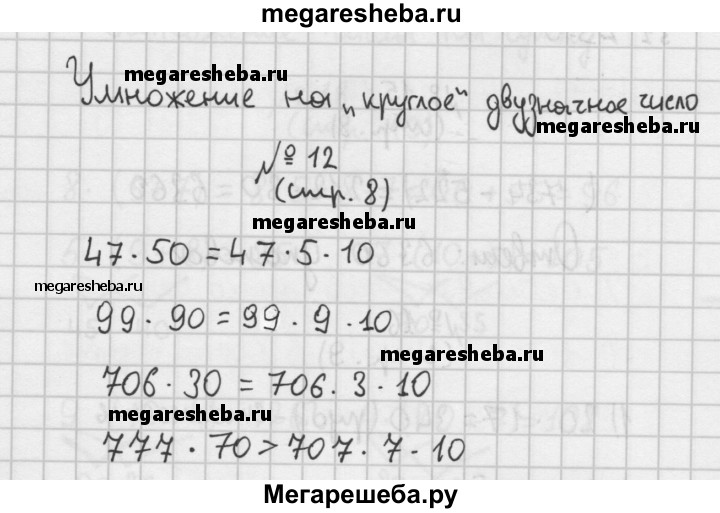 megaresheba.ru
megaresheba.ru
Умножение на "круглое" двузначное число
megaresheba.ru
№ 12
(стр. 8)
megaresheba.ru
47 · 50 = 47 · 5 · 10
megaresheba.ru
99 · 90 = 99 · 9 · 10
megaresheba.ru
706 · 30 = 706 · 3 · 10
megaresheba.ru
777 · 70 > 707 · 7 · 10
Мегарешеба.ру